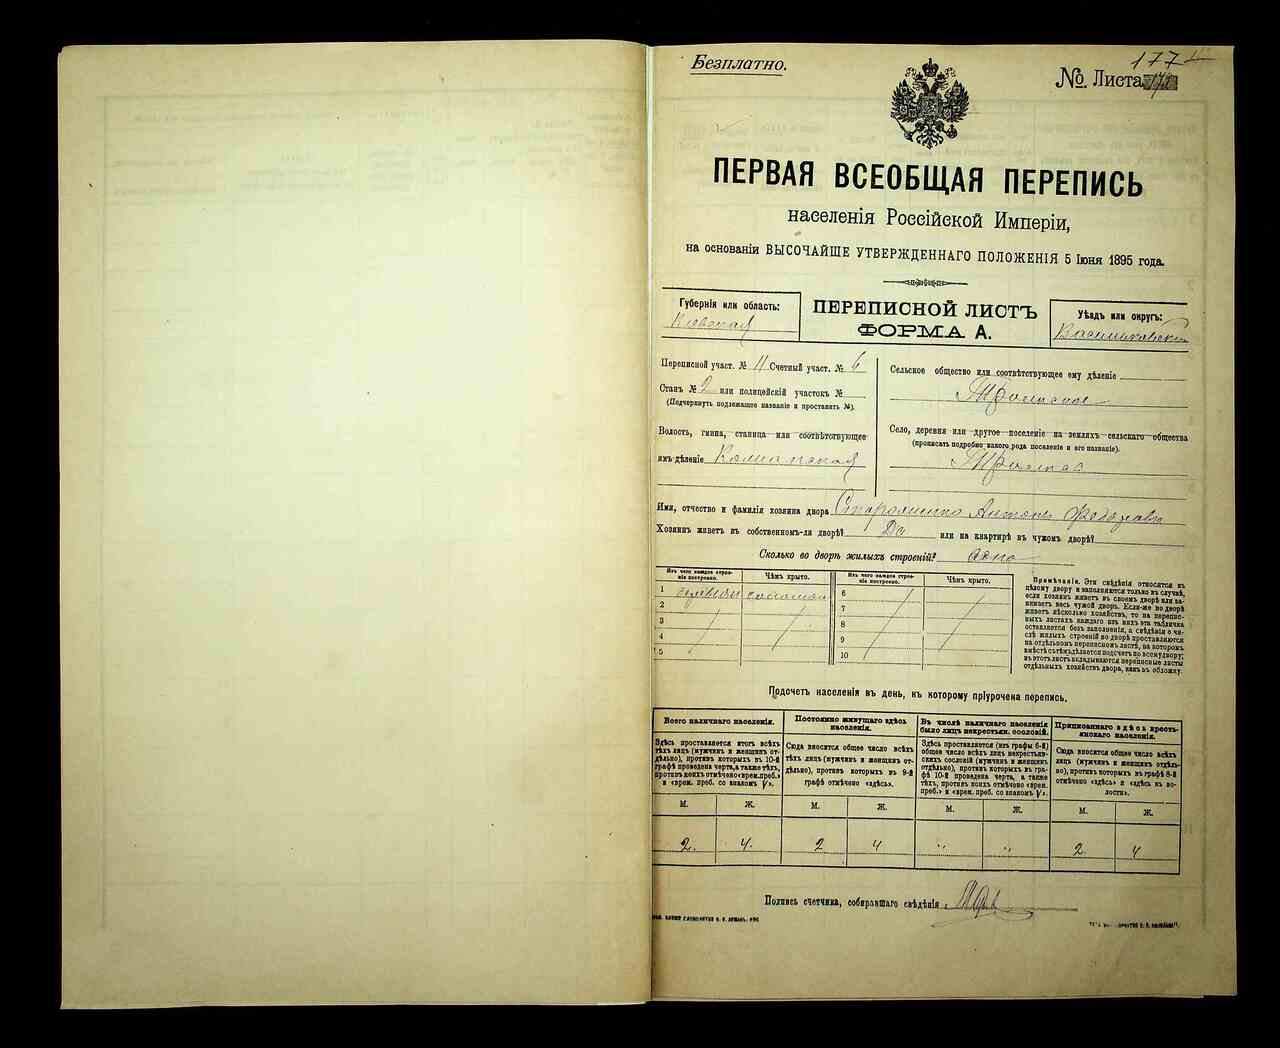 Безплатно.
177
№ Листа
ПЕРВАЯ ВСЕОБЩАЯ ПЕРЕПИСЬ
населенія Россійской Имперіи,
на основаніи ВЫСОЧАЙШЕ УТВЕРЖДЕННАГО ПОЛОЖЕНІЯ 5 Іюня 1895 года.
Губернія или область:
Кіевская
ПЕРЕПИСНОЙ ЛИСТЪ
ФОРМА А.
Уѣздъ или округъ:
Васильковскій
Переписной участ. № 11 Счетный участ. № 6
Станъ № 2 или полицейскій участокъ №
(Подчеркнуть подлежащее названіе и проставить №).
Волость, гмина, станица или соотвѣтствующее
имъ дѣленіе
Сельское общество или соотвѣтствующее ему дѣленіе
Село, деревня или другое поселеніе на земляхъ сельскаго общества
(прописать подробно какого рода поселеніе и его названіе).
Имя, отчество и фамилія хозяина двора Антонъ
Хозяинъ живетъ въ собственномъ-ли дворѣ? Да или на квартирѣ въ чужомъ дворѣ?
Сколько во дворѣ жилыхъ строеній? одно
Изъ чего каждое строеніе построено.
Чѣмъ крыто.
Изъ чего каждое строеніе построено.
Чѣмъ крыто.
1 соломой
2
3
4
5
6
7
8
9
10
Примѣчаніе. Эти свѣдѣнія относятся къ
цѣлому двору и заполняются только въ случаѣ,
если хозяинъ живетъ въ своемъ дворѣ или занимаетъ
весь чужой дворъ. Если-же во дворѣ
живетъ нѣсколько хозяйствъ, то на переписныхъ
листахъ каждаго изъ нихъ эта табличка
оставляется безъ заполненія, а свѣдѣнія о числѣ
жилыхъ строеній во дворѣ проставляются
на отдѣльномъ переписномъ листѣ, на которомъ
вмѣстѣ съ тѣмъ дѣлается подсчетъ по всему двору;
въ этотъ листъ вкладываются переписные листы
отдѣльныхъ хозяйствъ двора, какъ въ обложку.
Подсчетъ населенія въ день, къ которому пріурочена перепись.
Всего наличнаго населенія.
Здѣсь проставляется итогъ всѣхъ
тѣхъ лицъ (мужчинъ и женщинъ отдѣльно),
противъ которыхъ въ 10-й
графѣ проведена черта, а также тѣхъ,
противъ коихъ отмѣчено «врем. преб.»
и «врем. преб. со знакомъ V».
Постоянно живущаго здѣсь населенія.
Сюда вносится общее число всѣхъ
тѣхъ лицъ (мужчинъ и женщинъ отдѣльно),
противъ которыхъ въ 9-й
графѣ отмѣчено «здѣсь».
Въ числѣ наличнаго населенія
было лицъ некрестьян. сословій.
Здѣсь проставляется (изъ графы 6-й)
общее число всѣхъ лицъ некрестьянскихъ
сословій (мужчинъ и женщинъ
отдѣльно), противъ которыхъ въ графѣ
10-й проведена черта, а также
тѣхъ, противъ коихъ отмѣчено «врем.
преб.» и «врем. преб. со знакомъ V».
Приписаннаго здѣсь крестьянскаго населенія.
Сюда вносится общее число всѣхъ
лицъ (мужчинъ и женщинъ отдѣльно),
противъ которыхъ въ графѣ 8-й
отмѣчено «здѣсь» и «здѣсь въ волости».
М. Ж. М. Ж. М. Ж. М. Ж.
2. 4. 2 4 " " 2. 4
Подпись счетчика, собиравшаго свѣдѣнія